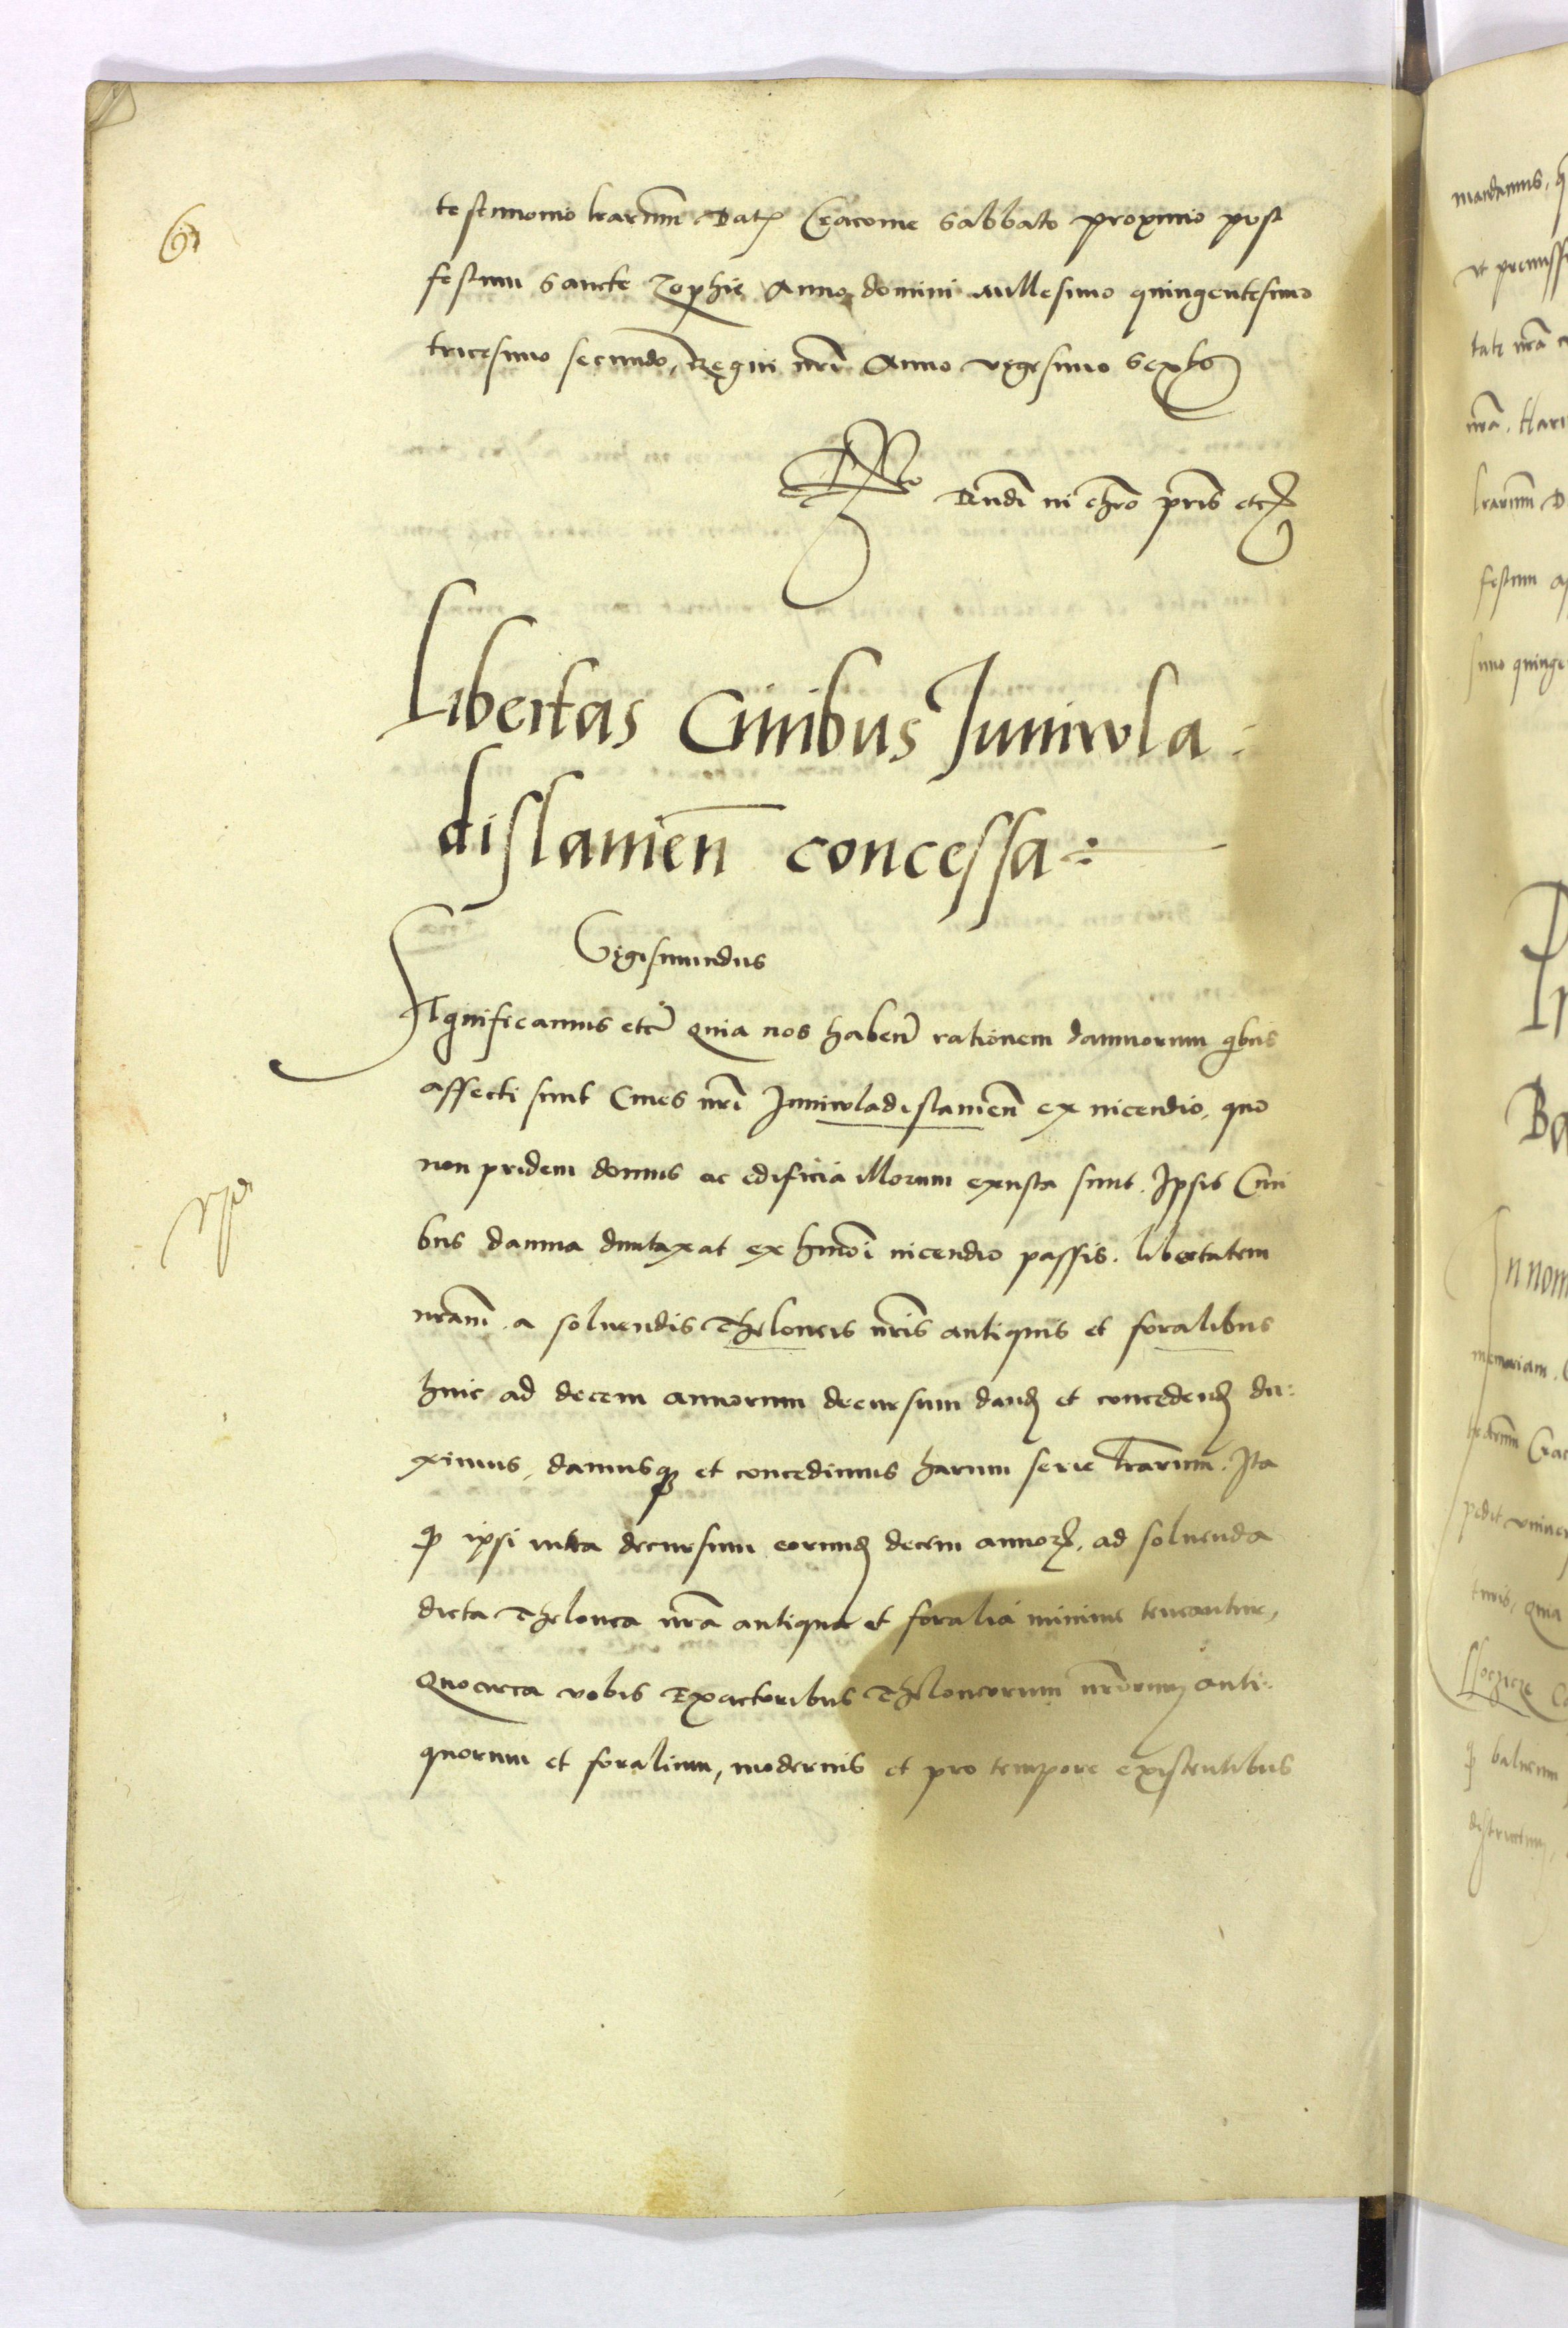 testimonio lrarum Dat Cracovie Sabbato proximo post
festum Sancte Zophie Anno domini Millesimo quingentesimo
tricesimo secundo, Regni nri Anno vigesimo Sexto
Rndi in chro pris etc
Libertas Civibus Iuniwla
dislavien concessa
Sigismundus
Significamus etc Quia nos haben rationem damnorum quibus
affecti sunt Cives nri Iuniwladislavien ex incendio, quo
non pridem domus ac edificia illorum exusta sunt. Ipsis Civi
bus damna duntaxat ex hmoi incendio passis. libertatem
nram a solvendis Theloneis nris antiquis et foralibus
hinc ad decem annorum decursum dand et concedend du:
ximus, damusque et concedimus harum serie lrarum. Ita
q ipsi intra decursum eorund decem annor, ad solvenda
dicta Thelonea nra antiqua et foralia minime teneantur,
Quocirca vobis Exactoribus Theloneorum nrorum anti:
quorum et foralium, modernis et pro tempore existentibus
mandamus,
ut premiss
nra
nra. Hari
lrarum D
festum
simo quinge
Ba
In nom
memoriam.
lrarum Crac
pedit univer
turis, Qui
balneum